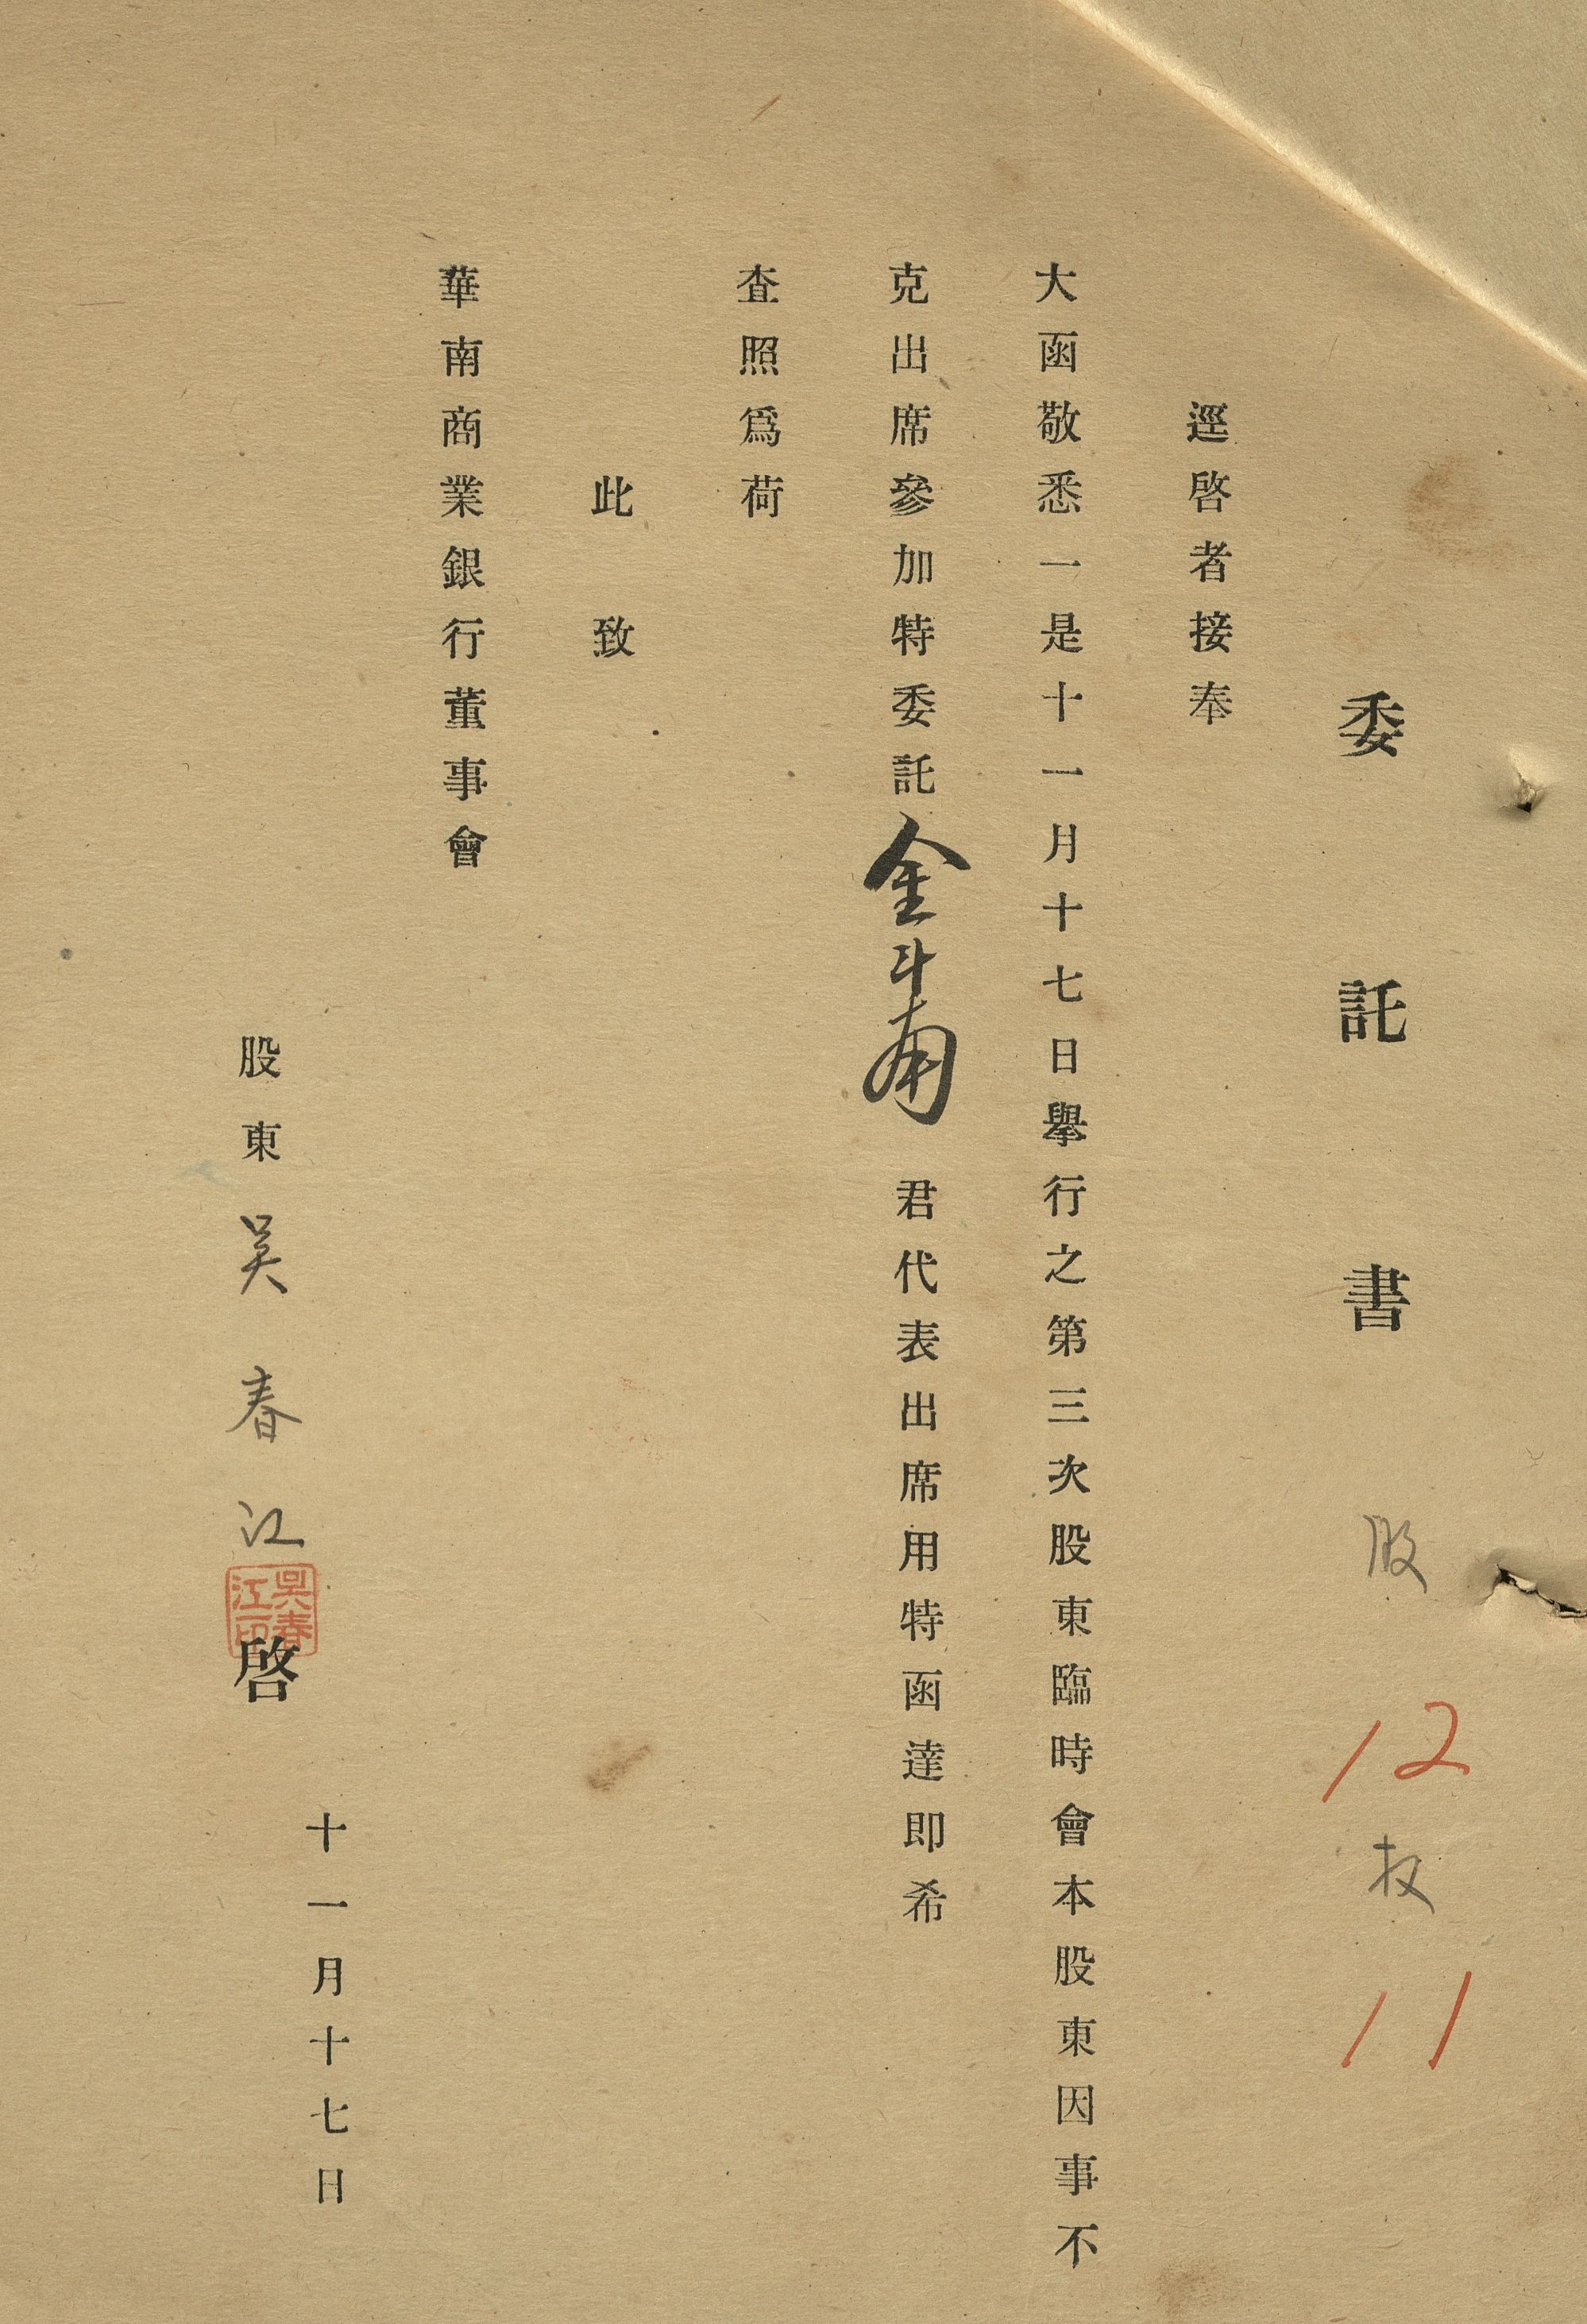 委託書 股 12 权 11
逕啓者接奉
大函敬悉一是十一月十七日舉行之第三次股東臨時會本股東因事不
克出席參加特委託金斗 君代表出席用特函達即希
査照爲荷
此致
華南商業銀行董事會
十一月十七日
股東吳春江啓
吳春江印